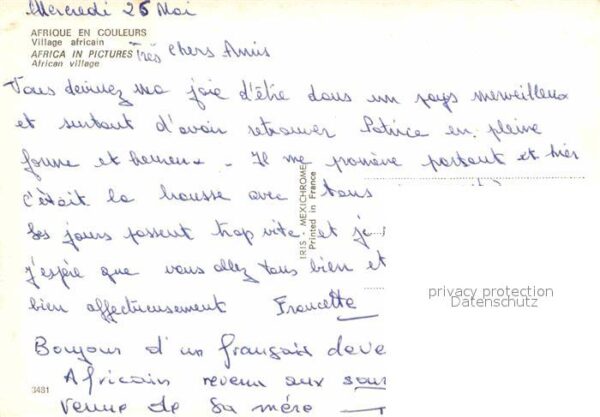 Mercredi 25 Mai
AFRIQUE EN COULEURS
Village africain
AFRICA IN PICTURES
African village
Très chers Amis
Vous devinez ma joie d'être dans un pays merveilleux
et surtout d'avoir retrouver Patrice en pleine
forme et heureux - Il me promène partout et hier
c'était la brousse avec tous
Les jours passent trop vite et je
j'espère que vous allez tous bien et
bien affectueusement Francette
Bonjour d'un français deve
Africain revenu aux sour
Venue de Sa mère
IRIS - MEXICHROME
Printed in France
3481
privacy protection
Datenschutz